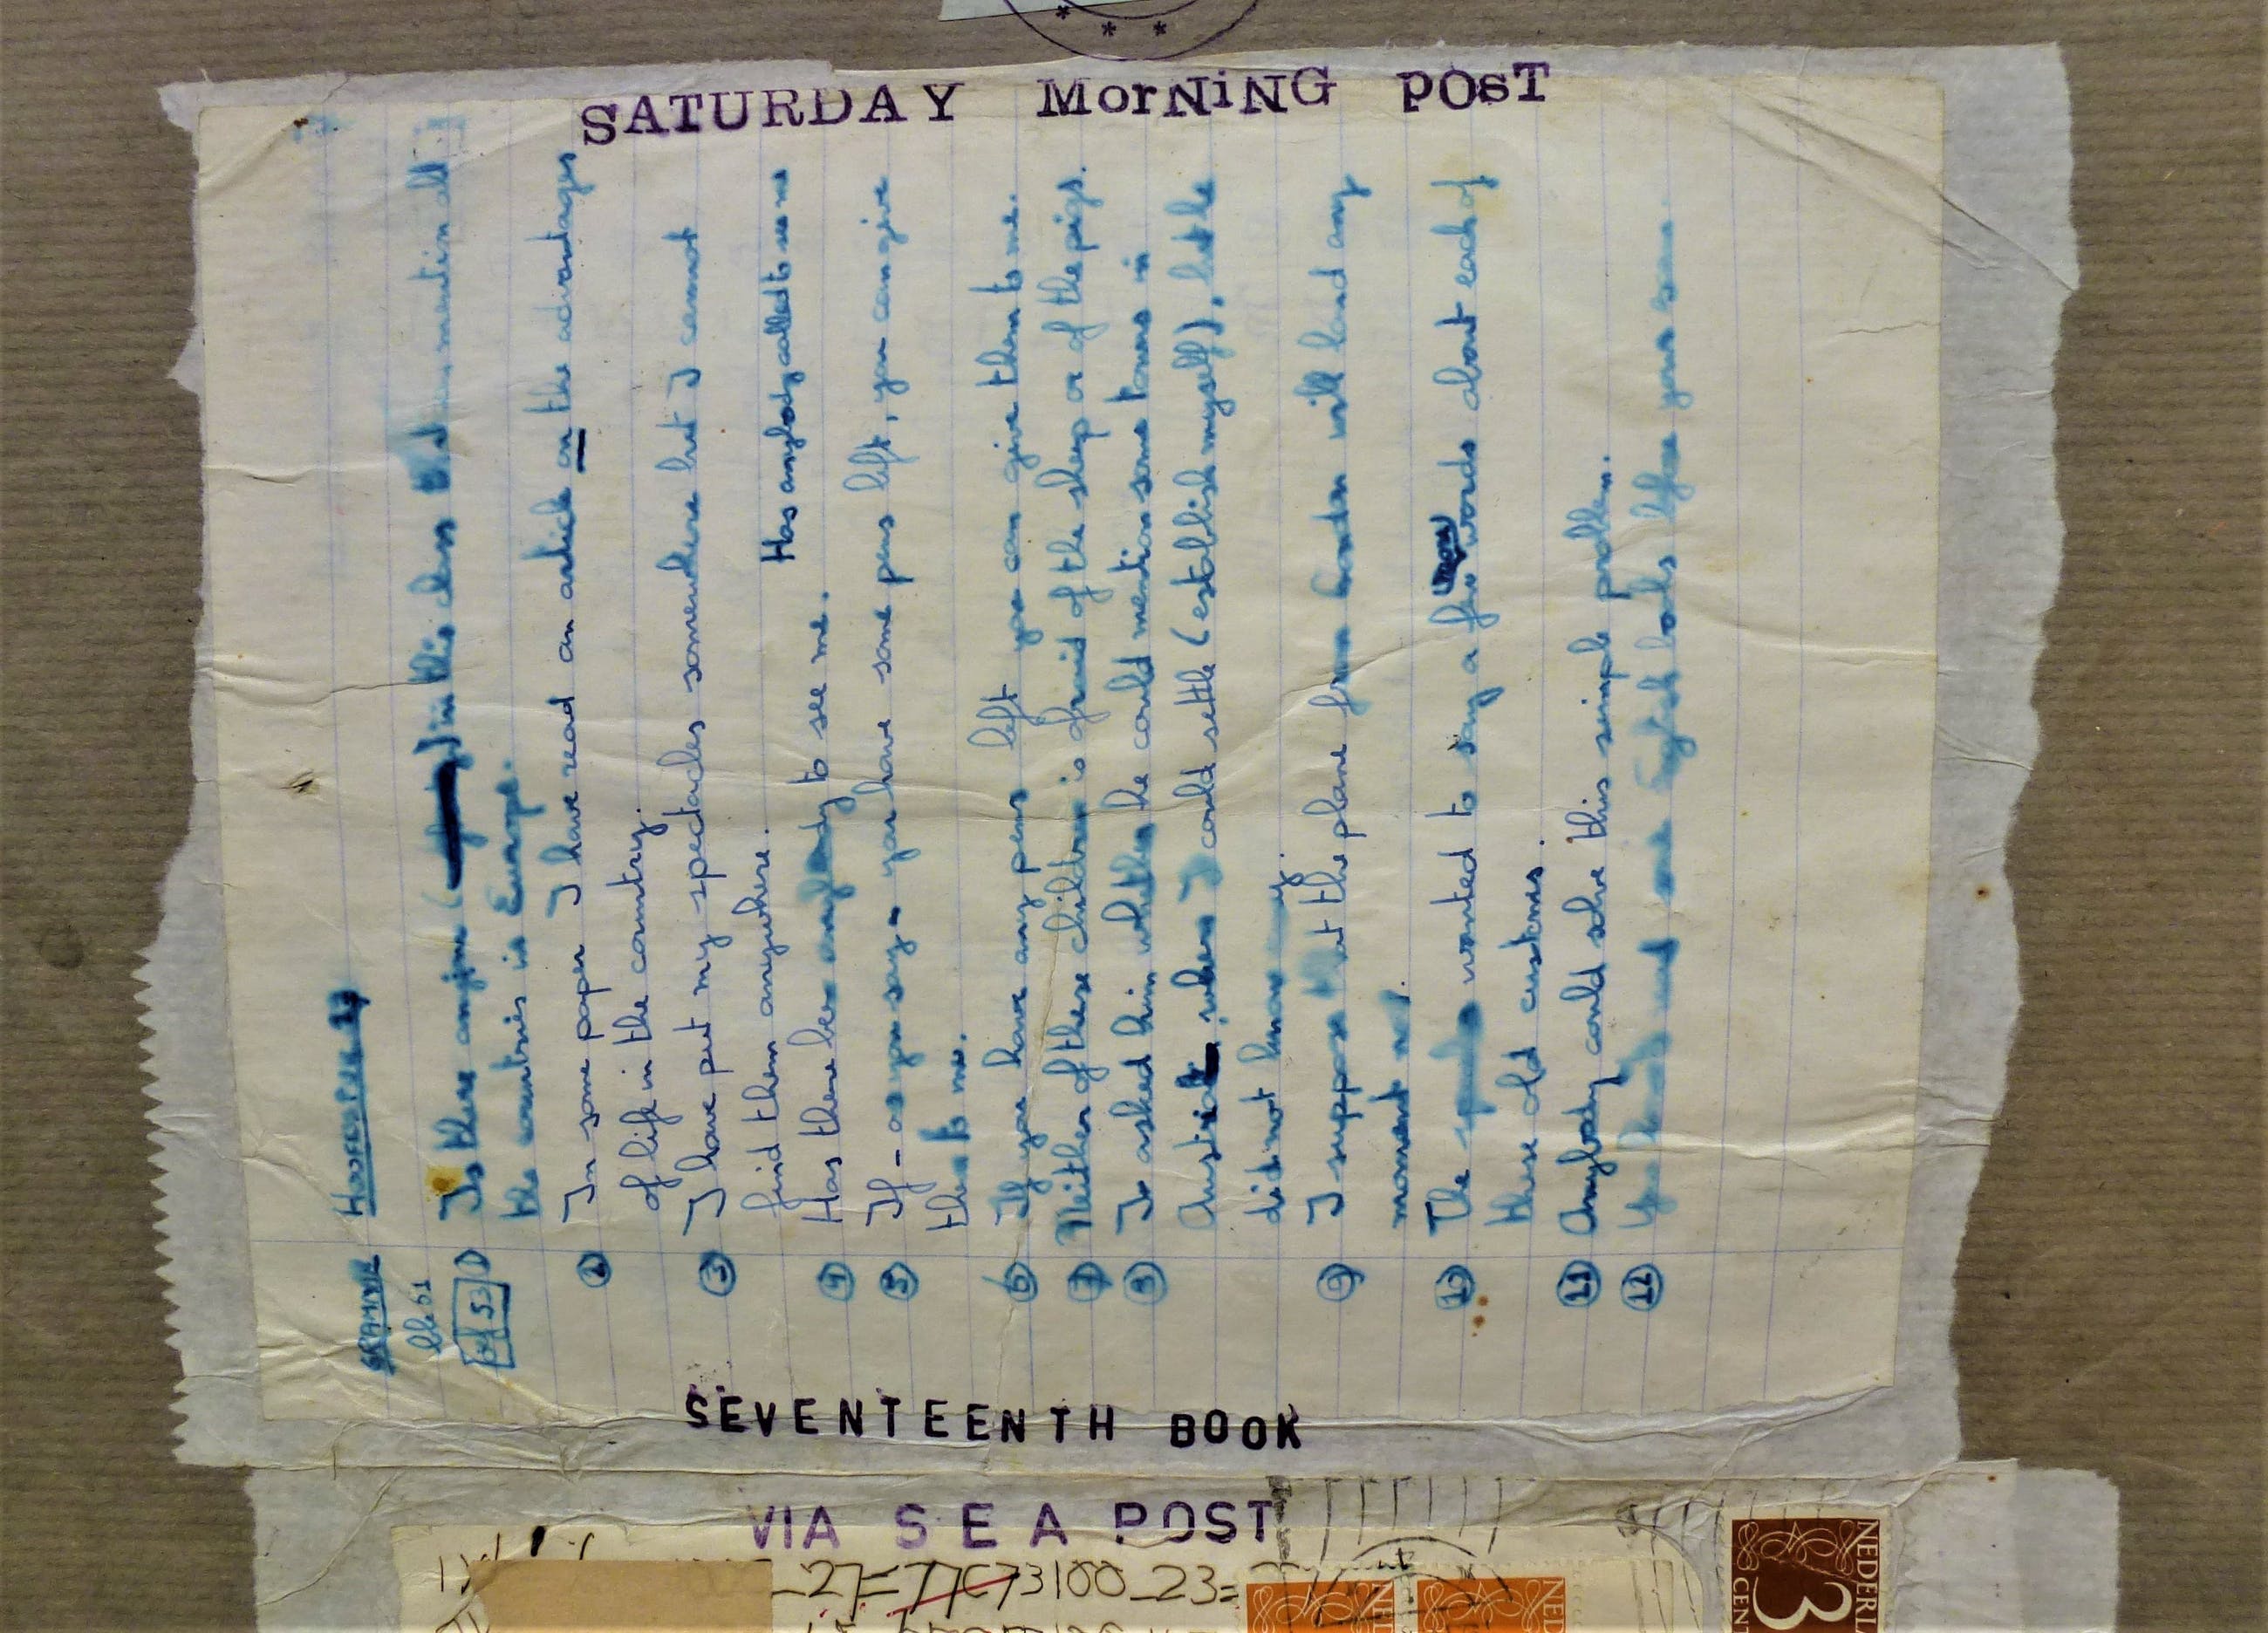 SATURDAY MorNiNG POsT
GRAMMAR HOOFDSTUK 17
blz 61
Is there in this class mention all
the countries in Europe.
② In some paper I have read an article on the advantages
of life in the country.
③ I have put my spectacles somewhere but I cannot
find them anywhere. Has anybody called to see me
④ Has there been anybody to see me.
⑤ If - as you say - you have some pens left, you can give
them to me.
⑥ If you have any pens left you can give them to me.
⑦ Neither of these children is afraid of the sheep or of the pigs.
⑧ I asked him whether he could mention some towns in
where I could settle (establish myself), but he
did not know any.
⑨ I suppose that the plane from London will land any
moment now.
now
⑩ The wanted to say a few words about each of
these old customs.
⑪ Anybody could solve this simple problem.
⑫ You read some English books before you
SEVENTEENTH BOOK
VIA SEA POST
-27= 73100-23=
NEDERL
3
CENT
NED
NED